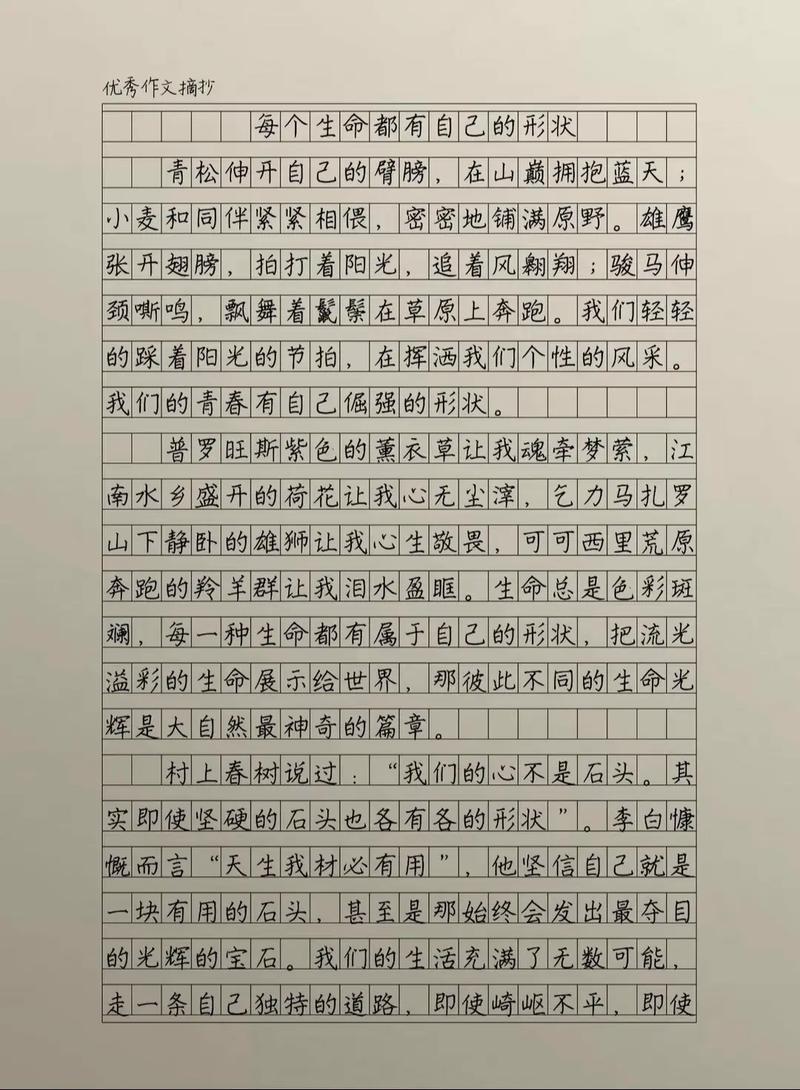 优秀作文摘抄
每个生命都有自己的形状
青松伸开自己的臂膀，在山巅拥抱蓝天；
小麦和同伴紧紧相偎，密密地铺满原野。雄鹰
张开翅膀，拍打着阳光，追着风翱翔；骏马伸
颈嘶鸣，飘舞着鬣鬃在草原上奔跑。我们轻轻
的踩着阳光的节拍，在挥洒我们个性的风采。
我们的青春有自己倔强的形状。
普罗旺斯紫色的薰衣草让我魂牵梦萦，江
南水乡盛开的荷花让我心无尘滓，乞力马扎罗
山下静卧的雄狮让我心生敬畏，可可西里荒原
奔跑的羚羊群让我泪水盈眶。生命总是色彩斑
斓，每一种生命都有属于自己的形状，把流光
溢彩的生命展示给世界，那彼此不同的生命光
辉是大自然最神奇的篇章。
村上春树说过：“我们的心不是石头。其
实即使坚硬的石头也各有各的形状”。李白慷
慨而言“天生我材必有用”，他坚信自己就是
一块有用的石头，甚至是那始终会发出最夺目
的光辉的宝石。我们的生活充满了无数可能，
走一条自己独特的道路，即使崎岖不平，即使